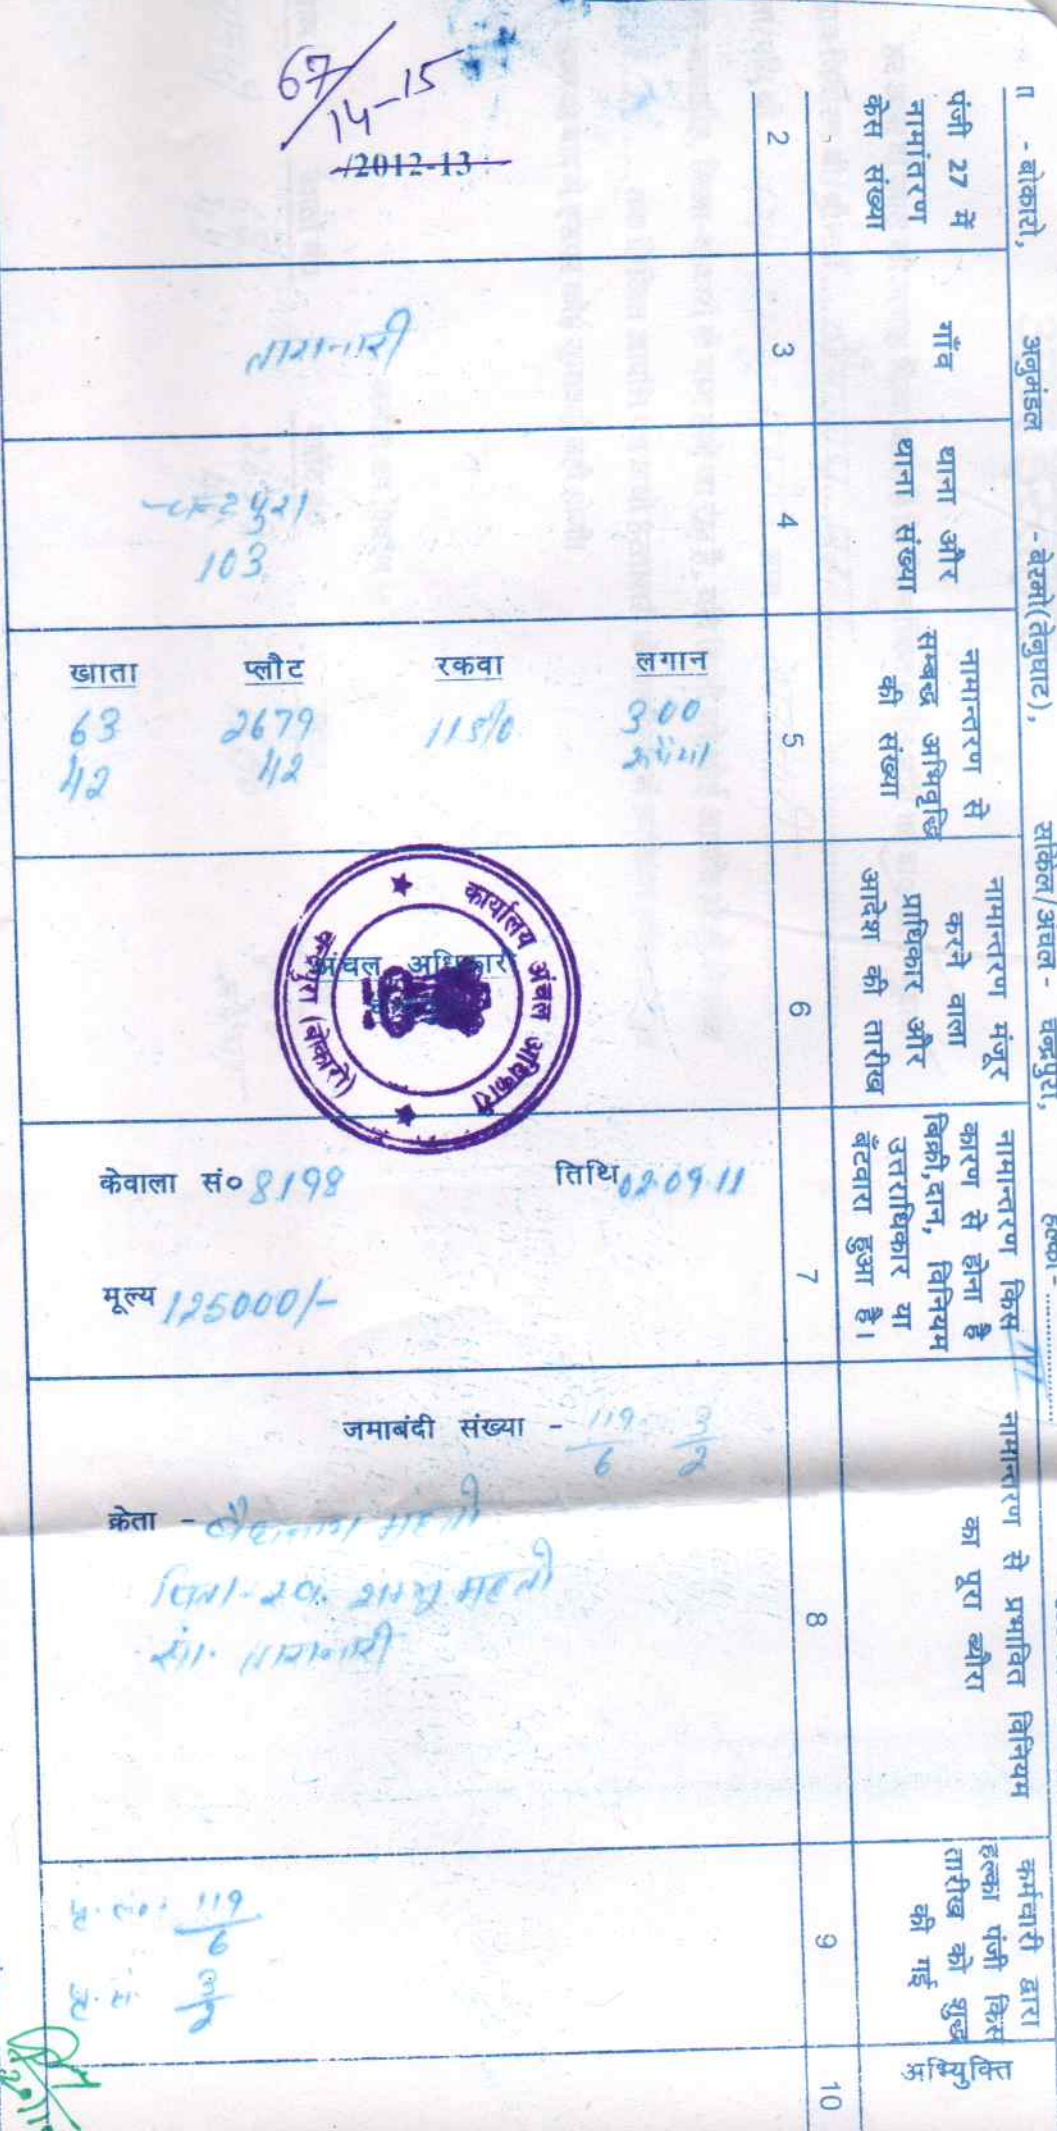 II - बोकारो, अनुमंडल - बेरमो(तेनुघाट), सर्किल/अंचल - चन्द्रपुरा, हल्का - ....................
पंजी 27 में
नामांतरण
केस संख्या
गाँव
थाना और
थाना संख्या
नामान्तरण से
सम्बद्ध अभिवृद्धि
की संख्या
नामान्तरण मंजूर
करने वाला
प्राधिकार और
आदेश की तारीख
नामान्तरण किस
कारण से होना है
बिक्री,दान, विनियम
उत्तराधिकार या
बंटवारा हुआ है।
नामान्तरण से प्रभावित विनियम
का पूरा ब्यौरा
कर्मचारी द्वारा
हल्का पंजी किस
तारीख को शुद्ध
की गई
अभियुक्ति
2 3 4 5 6 7 8 9 10
67/14-15
/2012-13
तारानारी
चन्द्रपुरा
103
खाता प्लौट रकवा लगान
63 2679 11डी0 3.00
42 42 रुपैया
अंचल अधिकारी
कार्यालय अंचल अधिकारी
चन्द्रपुरा (बोकारो)
केवाला सं० 8198 तिथि 02.09.11
मूल्य 125000/-
जमाबंदी संख्या - 119/6
क्रेता - बैजनाथ महतो
पिता-स्व. शम्भु महतो
सा. तारानारी
119/6